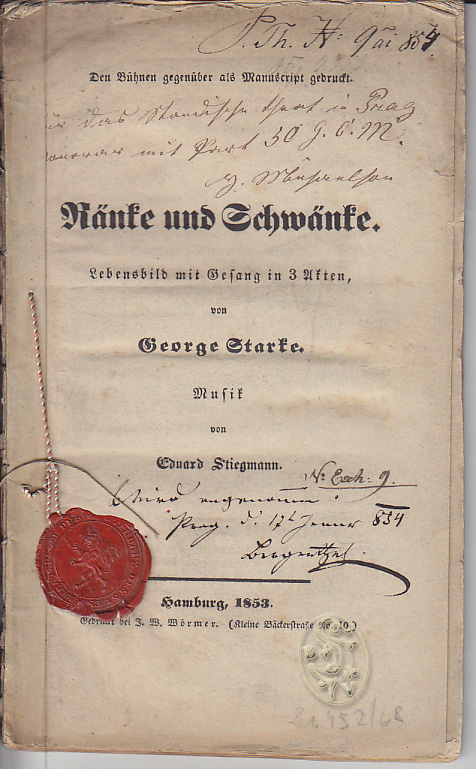 P. Th. N: 9 ai 854
Den Bühnen gegenüber als Manuscript gedruckt.
für das Ständische Theat in Prag
onorar mit Part 50 g. C. M.
Ränke und Schwänke.
Lebensbild mit Gesang in 3 Akten,
von
George Starke.
Musik
von
Eduard Stiegmann.
No Exh: 9.
Wird angenommen
Prag d. 17t Jenner 854
Hamburg, 1853.
Gedruckt bei J. W. Wörmer. (Kleine Bäckerstraße No. 10.)
21.452/62